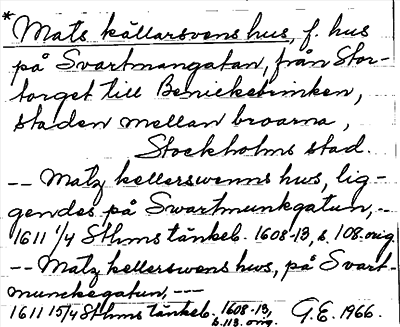 *Mats källarsvens hus, f. hus
på Svartmangatan, från Stor-
torget till Benickebrinken,
staden mellan broarna,
Stockholms stad.
-- Matz kellerswenns hus, lig-
gendes på Swartmunkgatun, --
1611 1/4 Sthms tänkeb. 1608-13, s. 108. orig.
-- Matz kellerswens hws, på Svart-
munckegatun, ---
1611 15/4 Sthms tänkeb. 1608-13,
s. 113. orig. G.E. 1966.